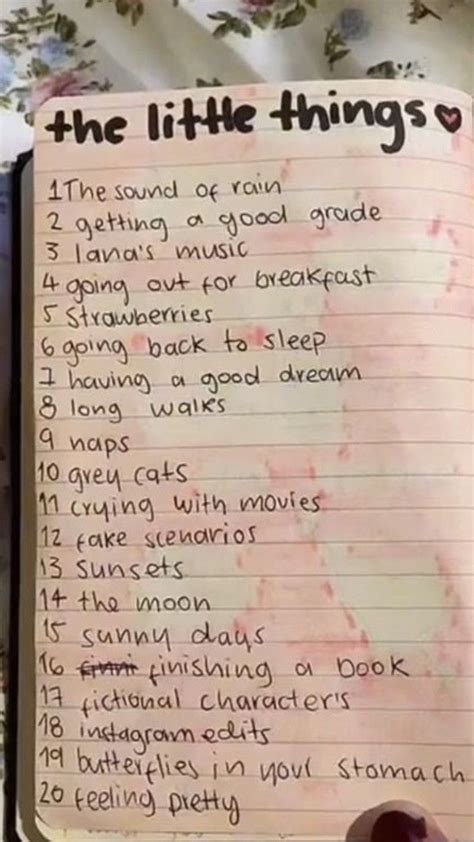 the little things
1 The sound of rain
2 getting a good grade
3 lana's music
4 going out for breakfast
5 Strawberries
6 going back to sleep
7 having a good dream
8 long walks
9 naps
10 grey cats
11 crying with movies
12 fake scenarios
13 sunsets
14 the moon
15 sunny days
16 finishing a book
17 fictional character's
18 instagram edits
19 butterflies in your stomach
20 feeling pretty